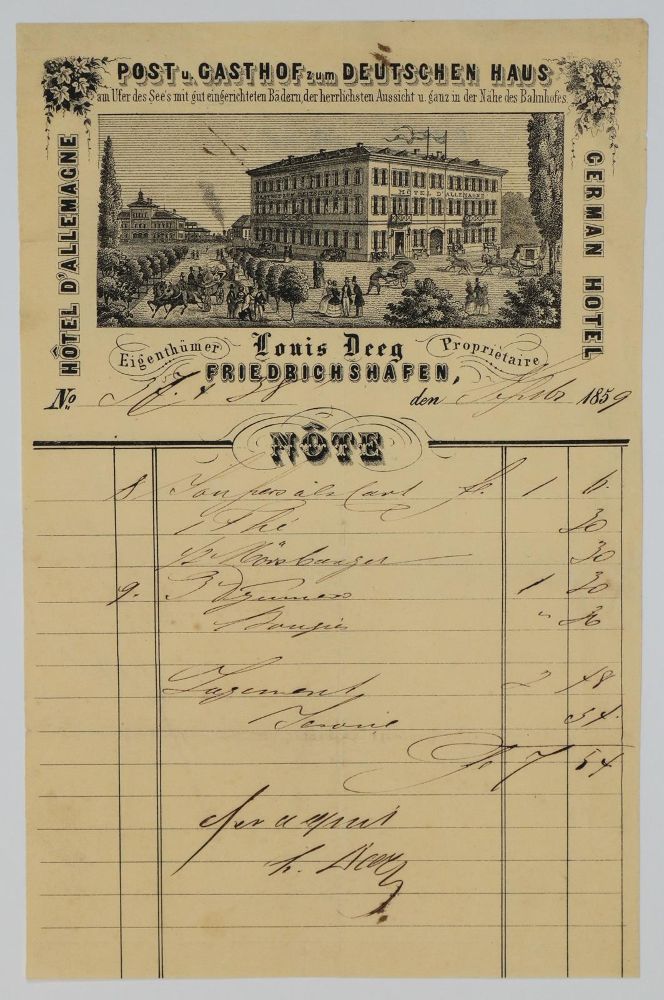 POST u. GASTHOF zum DEUTSCHEN HAUS
am Ufer des See's mit gut eingerichteten Bädern, der herrlichsten Aussicht u. ganz in der Nähe des Bahnhofes
HÔTEL D'ALLEMAGNE
GERMAN HOTEL
HÔTEL D'ALLEMAGNE
Eigenthümer Louis Deeg Propriétaire
FRIEDRICHSHAFEN,
No. 38 den Septbr 1859
NÔTE
8 Soupers à la Cart fl. 1 6.
1 Thé 30
1/2 30
9. 3 Dejeuners 1 30
Bougies " 36
Logement 2 48
Service 54.
fl. 7 54
Pour acquit
L. Deeg